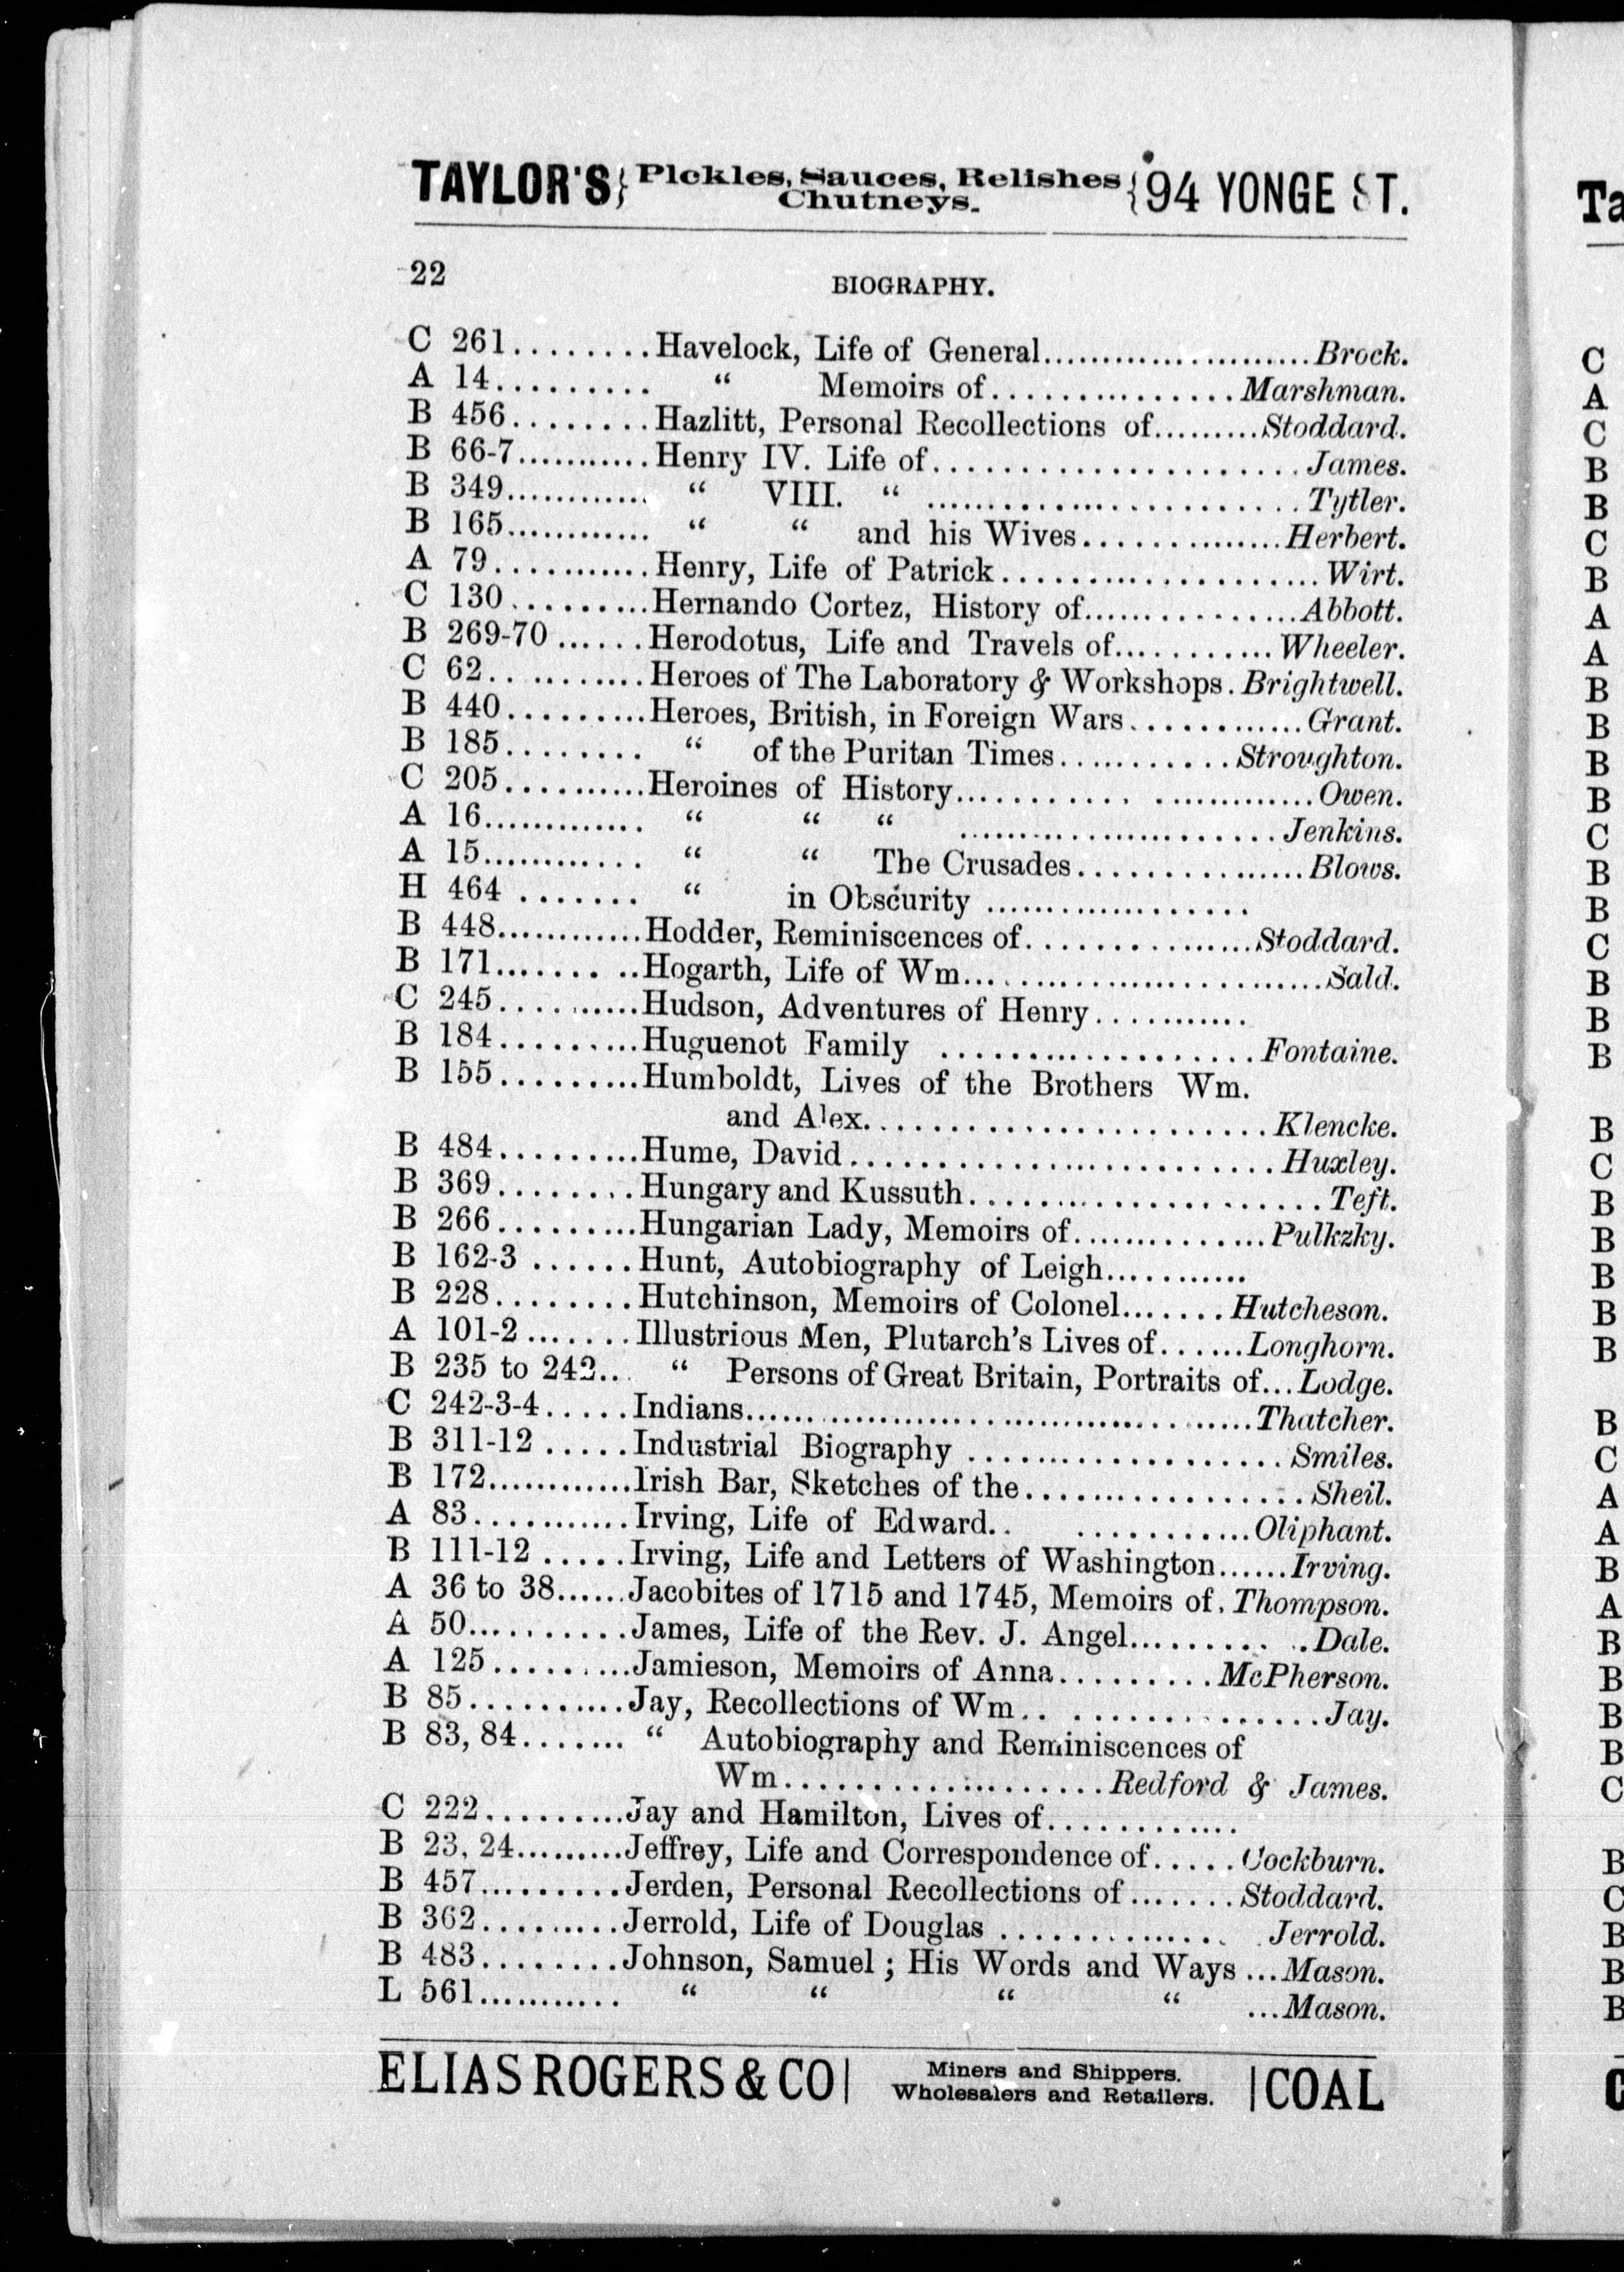 TAYLOR'S} Pickles, Sauces, Relishes {94 YONGE ST.
Chutneys.
22
BIOGRAPHY.
C 261.........Havelock, Life of General.......................Brock.
A 14.......... “ Memoirs of.................Marshman.
B 456.........Hazlitt, Personal Recollections of.........Stoddard.
B 66-7...........Henry IV. Life of.........................James.
B 349............ “ VIII. “ ..........................Tytler.
B 165............ “ “ and his Wives...............Herbert.
A 79............Henry, Life of Patrick......................Wirt.
C 130..........Hernando Cortez, History of................Abbott.
B 269-70 ......Herodotus, Life and Travels of...........Wheeler.
C 62...........Heroes of The Laboratory & Workshops.Brightwell.
B 440.........Heroes, British, in Foreign Wars............Grant.
B 185......... “ of the Puritan Times............Stroughton.
C 205..........Heroines of History.........................Owen.
A 16............. “ “ “ ......................Jenkins.
A 15............ “ “ The Crusades................Blows.
H 464 ....... “ in Obscurity ..................
B 448............Hodder, Reminiscences of...............Stoddard.
B 171.........Hogarth, Life of Wm..........................Sald.
C 245..........Hudson, Adventures of Henry...........
B 184..........Huguenot Family .....................Fontaine.
B 155..........Humboldt, Lives of the Brothers Wm.
and Alex..........................Klencke.
B 484..........Hume, David............................Huxley.
B 369.........Hungary and Kussuth........................Teft.
B 266..........Hungarian Lady, Memoirs of..............Pulkzky.
B 162-3 .......Hunt, Autobiography of Leigh............
B 228.........Hutchinson, Memoirs of Colonel.......Hutcheson.
A 101-2 .......Illustrious Men, Plutarch's Lives of......Longhorn.
B 235 to 242... “ Persons of Great Britain, Portraits of...Lodge.
C 242-3-4......Indians.....................................Thatcher.
B 311-12 .....Industrial Biography .....................Smiles.
B 172.............Irish Bar, Sketches of the...................Sheil.
A 83............Irving, Life of Edward.. ............Oliphant.
B 111-12 .....Irving, Life and Letters of Washington......Irving.
A 36 to 38......Jacobites of 1715 and 1745, Memoirs of.Thompson.
A 50............James, Life of the Rev. J. Angel......... ..Dale.
A 125..........Jamieson, Memoirs of Anna..........McPherson.
B 85...........Jay, Recollections of Wm.. .................Jay.
B 83, 84....... “ Autobiography and Reminiscences of
Wm......................Redford & James.
C 222..........Jay and Hamilton, Lives of.............
B 23, 24.........Jeffrey, Life and Correspondence of.....Cockburn.
B 457..........Jerden, Personal Recollections of.......Stoddard.
B 362..........Jerrold, Life of Douglas ............... .Jerrold.
B 483.........Johnson, Samuel ; His Words and Ways ...Mason.
L 561........... “ “ “ “ ...Mason.
ELIAS ROGERS & CO | Miners and Shippers. | COAL
Wholesalers and Retailers.
Ta
C
A
C
B
B
C
B
A
A
B
B
B
B
C
B
B
C
B
B
B
B
C
B
B
B
B
B
B
C
A
A
B
A
B
B
B
B
C
B
C
B
B
B
C